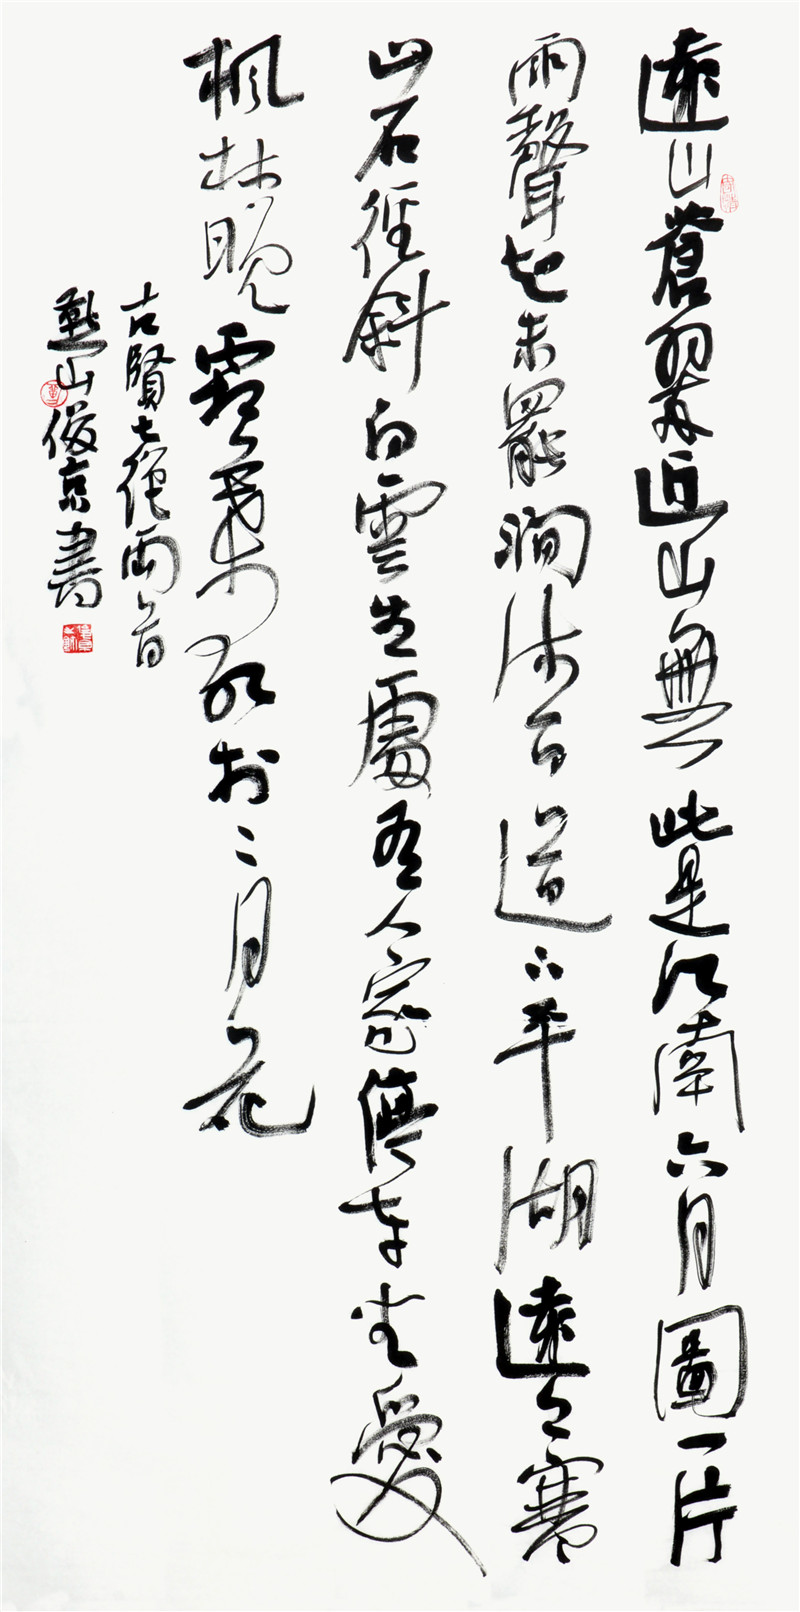 遠山蒼翠近山無此是江南六月圖一片
雨聲知未罷澗流百道下平湖遠上寒
山石徑斜白雲生處有人家停車坐愛
楓林晚霜葉紅於二月花
古賢七絕兩首
山俊京書